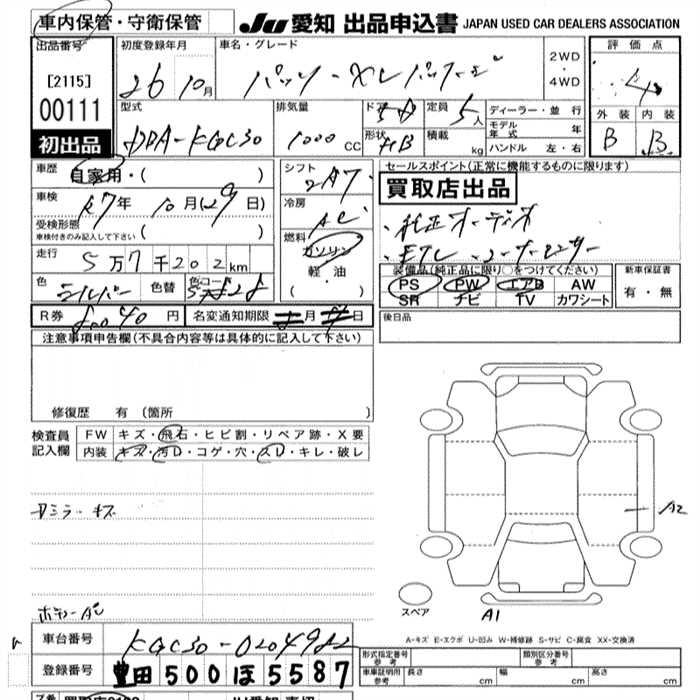 車内保管・守衛保管 JU 愛知 出品申込書 JAPAN USED CAR DEALERS ASSOCIATION
出品番号 [2115] 00111 初出品
初度登録年月 26 10月
車名・グレード パッソ XLパッケージ
2WD・4WD
評価点 4
外装 B 内装 B
型式 DBA-KGC30
排気量 1000 CC
ドア 5D 形状 HB
定員 5人 積載 kg
ディーラー・並行
モデル年式 年
ハンドル 左・右
車歴 自家用・( )
車検 R7年 10月(29日)
受検形態
車検付きのみ記入して下さい ( )
走行 5万7千202km
色 シルバー 色替 色コード
シフト
冷房 AC
燃料 ガソリン 軽油 ( )
セールスポイント(正常に機能するものに限ります)
買取店出品
・純正オーディオ
・ETC ・コーナーセンサー
装備品(純正品に限り○をつけてください)
PS PW エアB AW
SR ナビ TV カワシート
新車保証書 有・無
R券 8040円 名変通知期限 月 日
後日品
注意事項申告欄(不具合内容等は具体的に記入して下さい)
修復歴 有 (箇所 )
検査員記入欄
FW キズ・飛石・ヒビ割・リペア跡・X要
内装 キズ・汚れ・コゲ・穴・スレ・キレ・破レ
ミラーキズ
A2
スペア
A1
A-キズ E-エクボ U-凹み W-補修跡 S-サビ C-腐食 XX-交換済
車台番号 KGC30-0204982
登録番号 豊田 500 ほ 5587
型式指定番号 参考 類別区分番号 参考
車庫証明用 参考 長さ cm 幅 cm 高さ cm